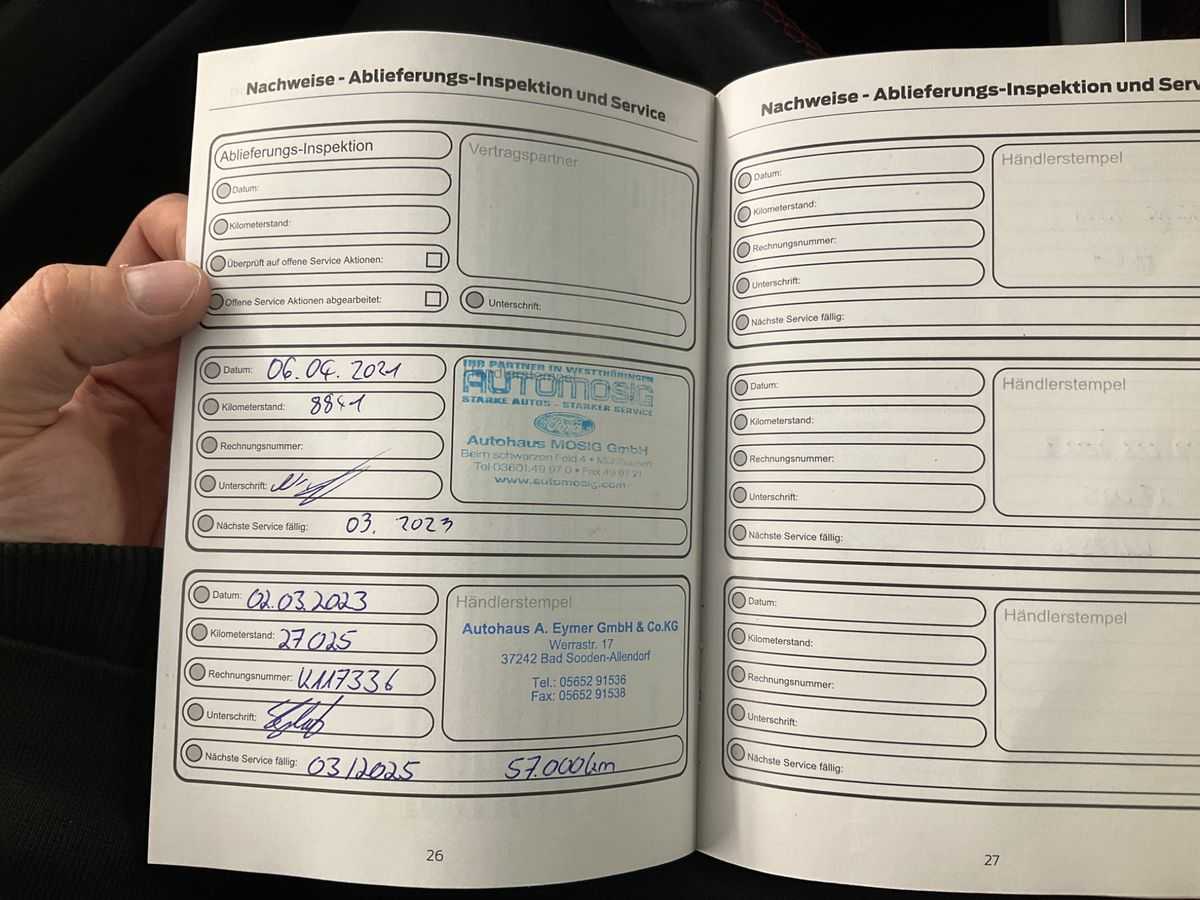 Nachweise - Ablieferungs-Inspektion und Service
Ablieferungs-Inspektion
Datum:
Kilometerstand:
Überprüft auf offene Service Aktionen:
Offene Service Aktionen abgearbeitet:
Vertragspartner
Unterschrift:
Datum: 06.04.2021
Kilometerstand: 8841
Rechnungsnummer:
Unterschrift:
Nächste Service fällig: 03.2023
IHR PARTNER IN WESTTHÜRINGEN
AUTOMOSIG
STARKE AUTOS - STARKER SERVICE
Autohaus MOSIG GmbH
Beim schwarzen Feld 4 • Mühlhausen
Tel 03601.49 97 0 • Fax 49 97 21
www.automosig.com
Datum: 02.03.2023
Kilometerstand: 27025
Rechnungsnummer: K117336
Unterschrift:
Nächste Service fällig: 03/2025 57.000km
Händlerstempel
Autohaus A. Eymer GmbH & Co.KG
Werrastr. 17
37242 Bad Sooden-Allendorf
Tel.: 05652 91536
Fax: 05652 91538
26
Nachweise - Ablieferungs-Inspektion und Serv
Datum:
Kilometerstand:
Rechnungsnummer:
Unterschrift:
Nächste Service fällig:
Händlerstempel
Datum:
Kilometerstand:
Rechnungsnummer:
Unterschrift:
Nächste Service fällig:
Händlerstempel
Datum:
Kilometerstand:
Rechnungsnummer:
Unterschrift:
Nächste Service fällig:
Händlerstempel
27